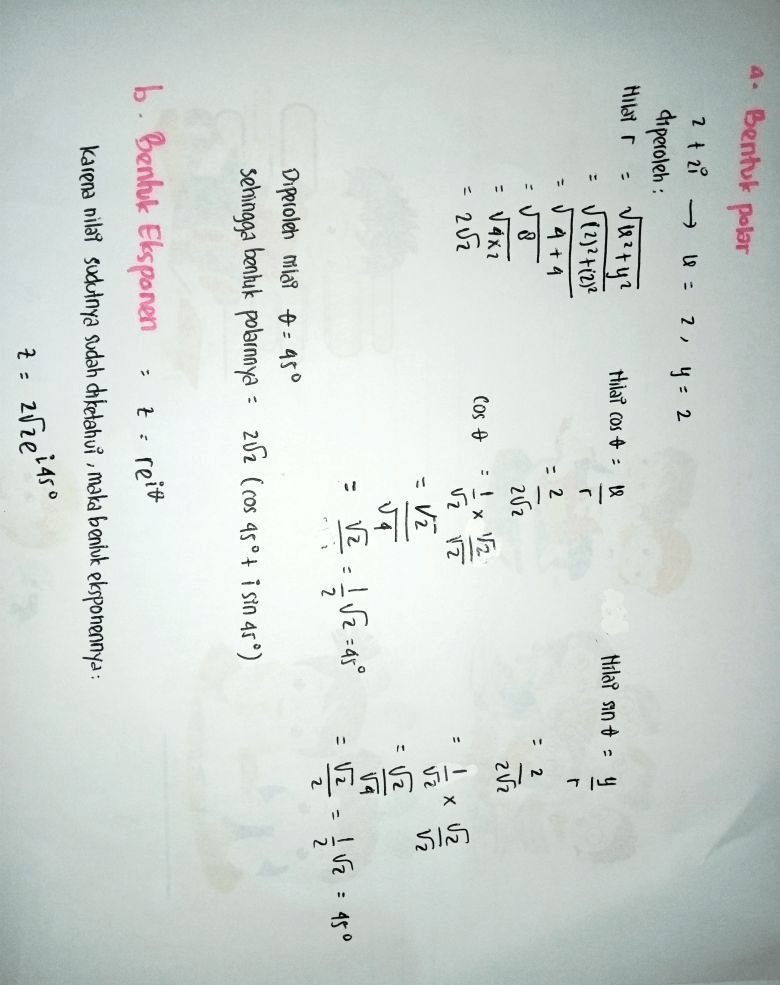 a. Bentuk polar
2 + 2i → x = 2, y = 2
diperoleh:
Nilai r = √x²+y²
= √(2)²+(2)²
= √4+4
= √8
= √4×2
= 2√2
Nilai cos θ = x/r
= 2/2√2
cos θ = 1/√2 × √2/√2
= √2/√4
= √2/2 = 1/2 √2 = 45°
Nilai sin θ = y/r
= 2/2√2
= 1/√2 × √2/√2
= √2/√4
= √2/2 = 1/2 √2 = 45°
Diperoleh nilai θ = 45°
Sehingga bentuk polarnnya = 2√2 (cos 45° + i sin 45°)
b. Bentuk Eksponen = z = re^iθ
Karena nilai sudutnya sudah diketahui, maka bentuk eksponennya:
z = 2√2e^i45°